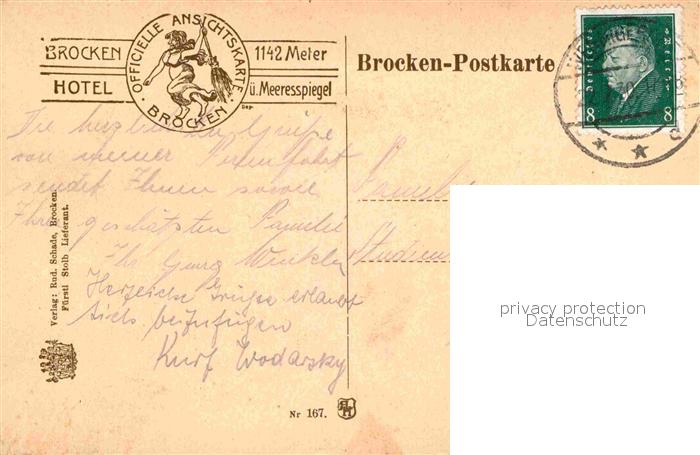 BROCKEN
HOTEL
OFFICIELLE ANSICHTSKARTE
BROCKEN
1142 Meter
ü. Meeresspiegel
Dep.
Brocken-Postkarte
Deutsches Reich
8 8
Die herzlichsten Grüße
von meiner
sendet Ihnen sowie
Ihrer geschätzten Familie
Ihr Georg Winkler
Herzliche Grüße erlaubt
sich beizufügen
Kurt Wodarsky
Familie
Verlag: Rud. Schade, Brocken.
Fürstl Stolb Lieferant.
Nr 167.
privacy protection
Datenschutz